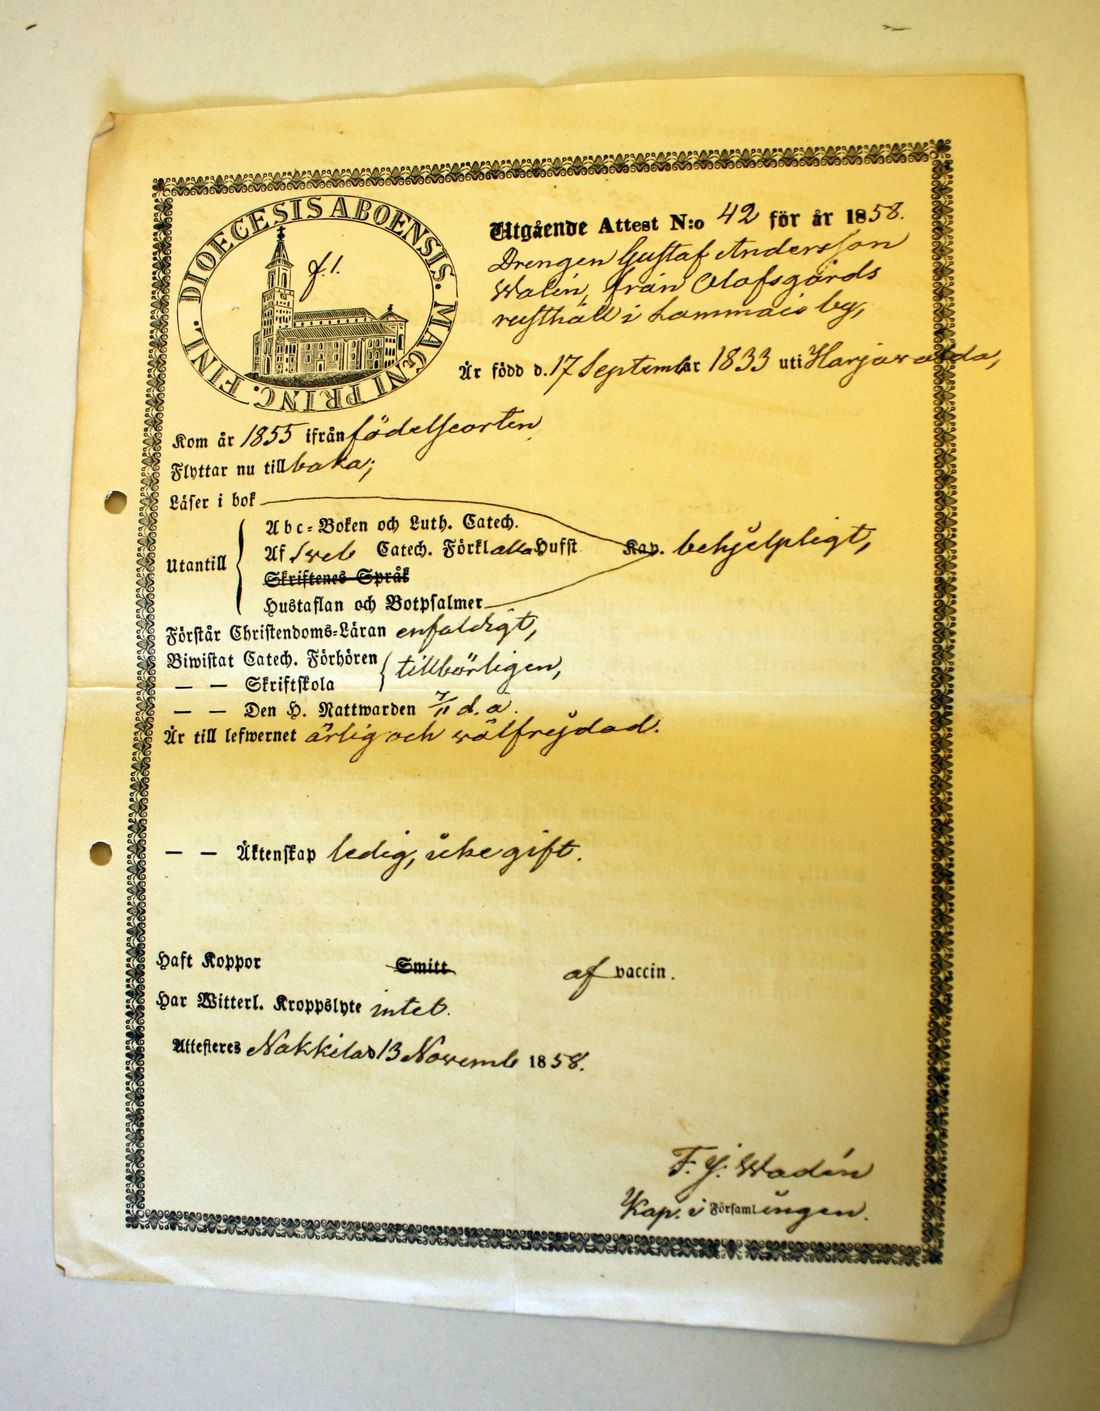 DIOECESIS ABOENSIS. MAGNI PRINC. FINL.
Utgående Attest N:o 42 för år 1858.
Drengen Gustaf Andersson
Walin, från Olofsgårds
rusthåll i Lammais by,
Är född d. 17 September 1833 uti Harjawalda,
Kom år 1855 ifrån födelseorten
Flyttar nu till baka;
Läser i bok
Abc-Boken och Luth. Catech.
Utantill Af Sveb Catech. Förkl alla Husst Kap. behjelpligt,
Skriftenes Språk
Hustaflan och Botpsalmer
Förstår Christendoms-Läran enfaldigt,
Biwistat Catech. Förhören tillbörligen,
— — Skriftskola
— — Den H. Nattwarden 7/11 d. å.
Är till lefwernet ärlig och wälfrejdad.
— — Äktenskap ledig, icke gift.
Haft Koppor Smitt af vaccin.
Har Witterl. Kroppslyte intet.
Attesteres Nakkila d 13 Novemb 1858.
F. J. Wadén
Kap. i Församlingen.